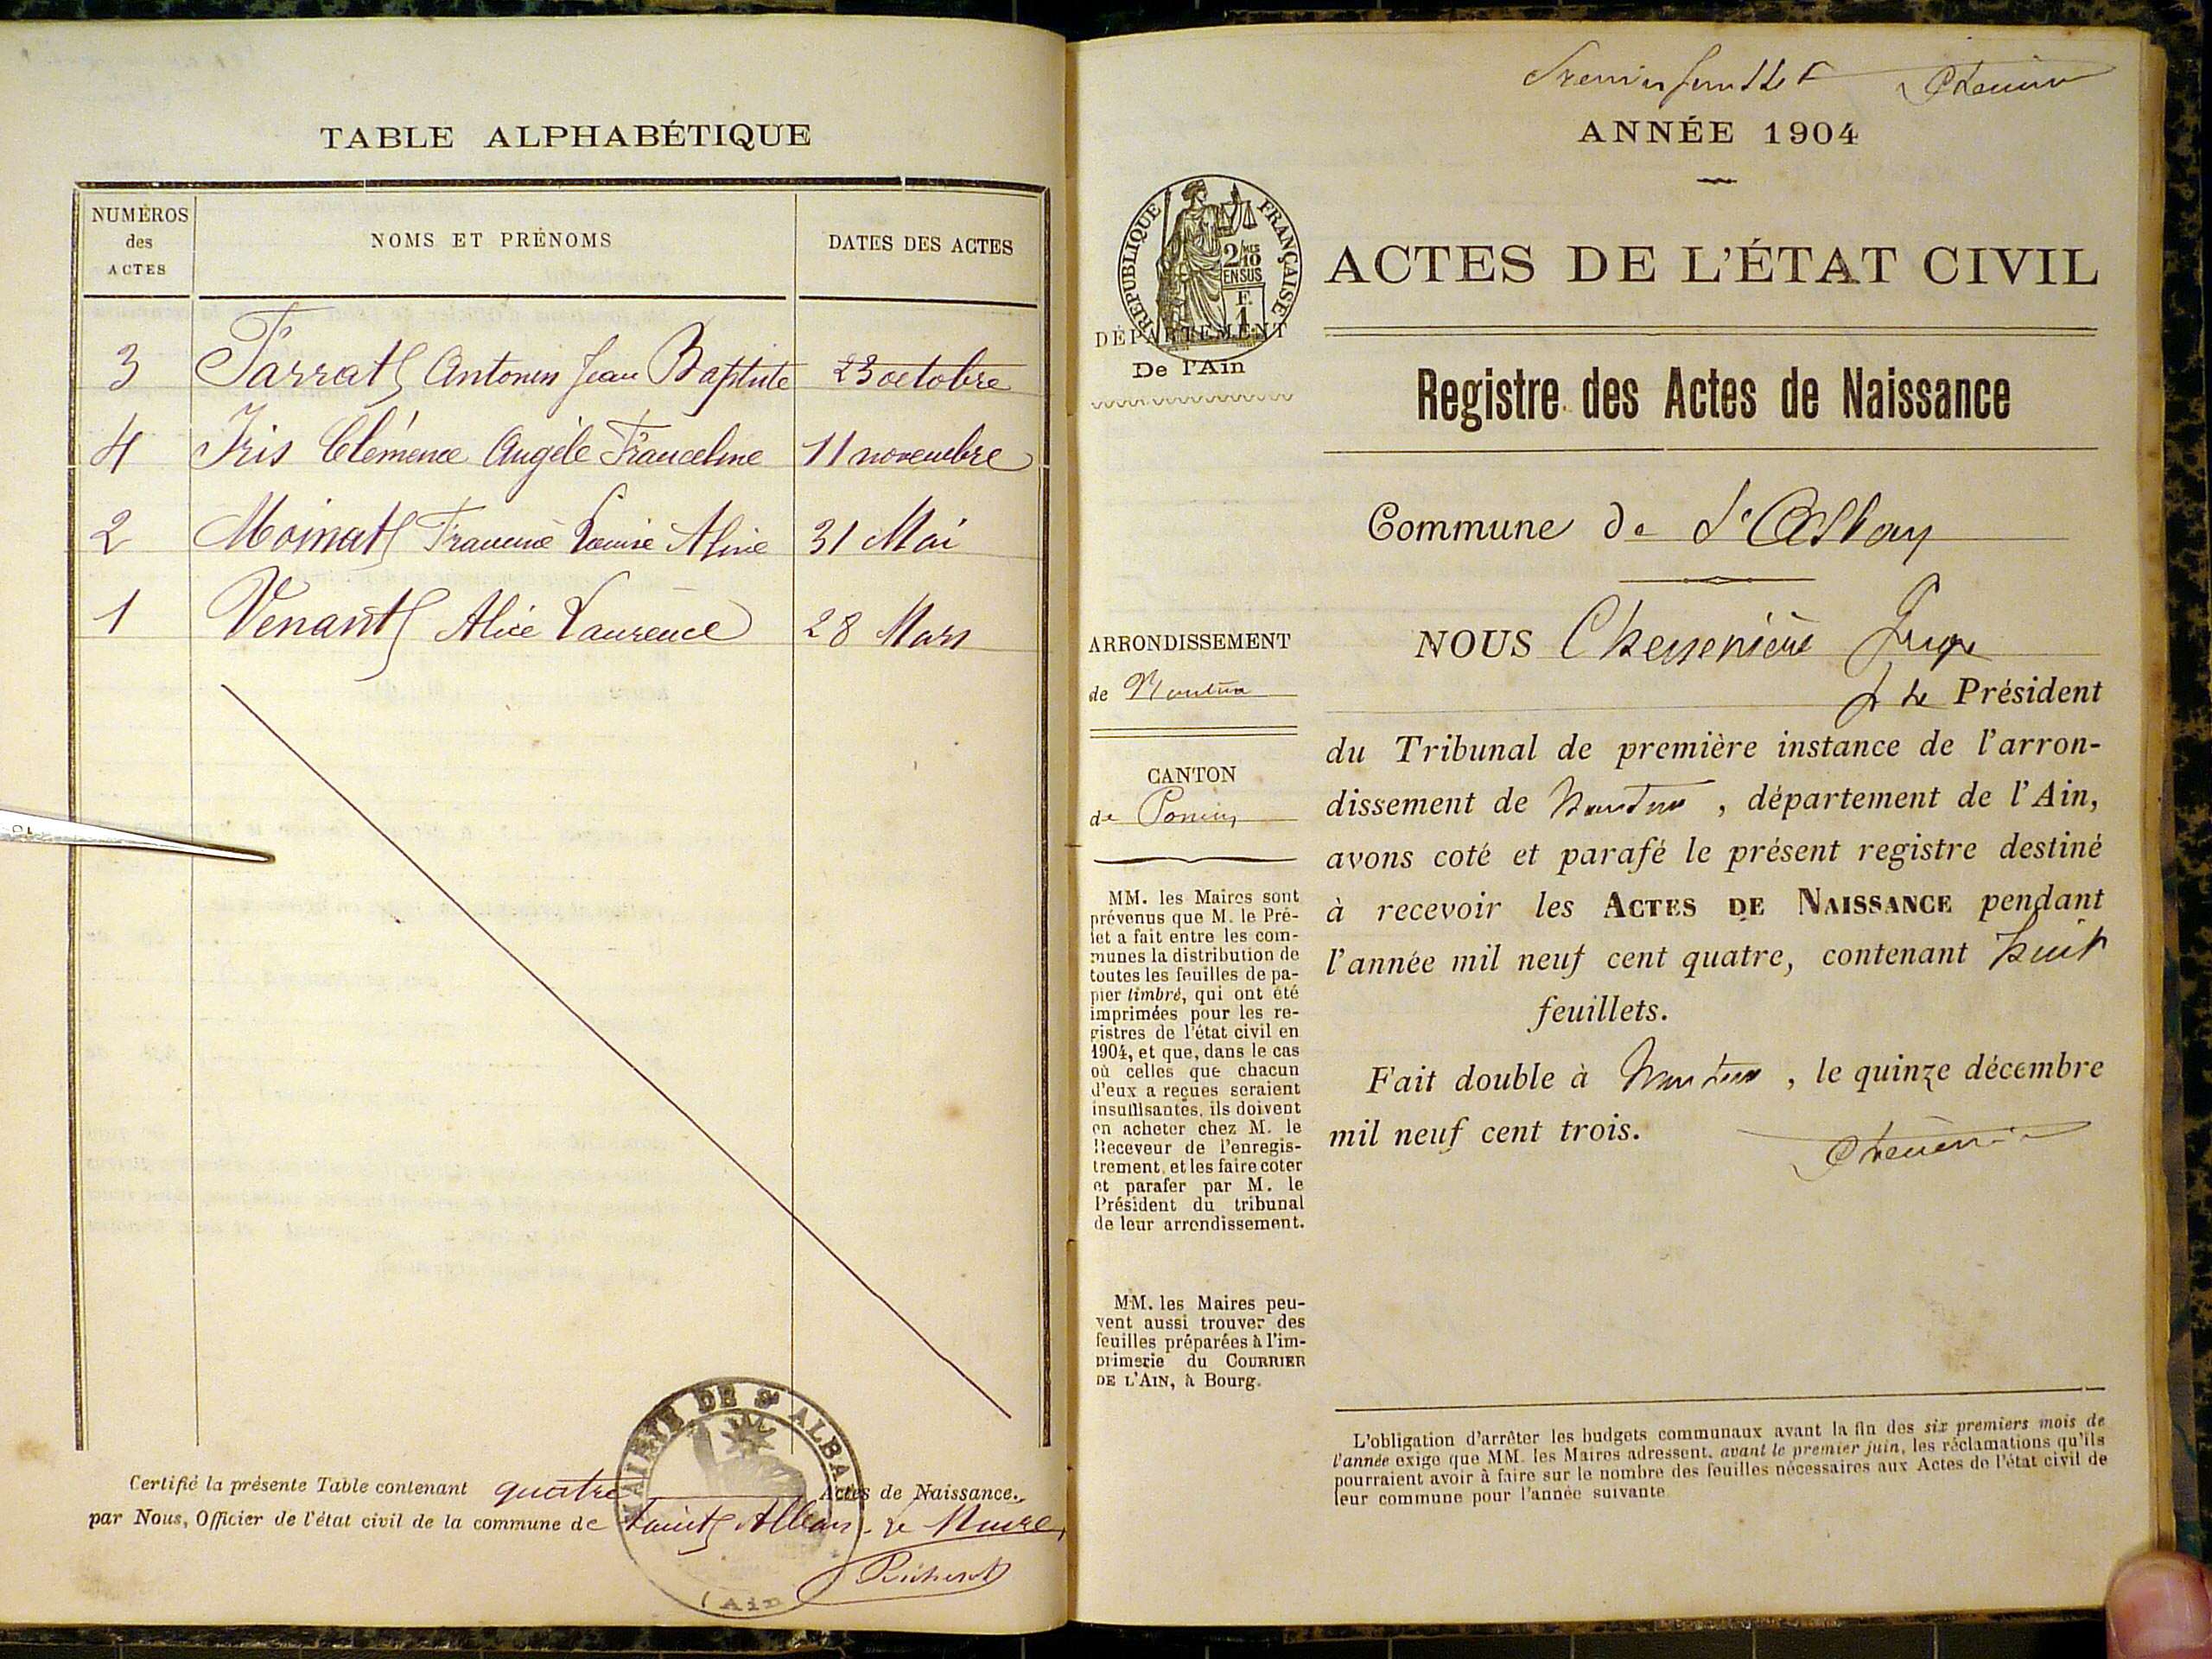 TABLE ALPHABÉTIQUE
NUMÉROS
des
ACTES
NOMS ET PRÉNOMS
DATES DES ACTES
3 Antonin Jean Baptiste 23 octobre
4 Iris Clémence Angèle Franceline 11 novembre
2 Moinat Louise Aline 31 Mai
1 Venant Alice Laurence 28 Mars
Certifié la présente Table contenant quatre Actes de Naissance.
par Nous, Officier de l'état civil de la commune de Saint Alban. Le Maire,
MAIRIE DE St ALBAN
(Ain)
Premier feuillet
ANNÉE 1904
RÉPUBLIQUE FRANÇAISE
2/10
EN SUS
F.
1
DÉPARTEMENT
De l'Ain
ACTES DE L'ÉTAT CIVIL
Registre des Actes de Naissance
Commune de St Alban
ARRONDISSEMENT
de Nantua
CANTON
de Poncin
MM. les Maires sont
prévenus que M. le Pré-
fet a fait entre les com-
munes la distribution de
toutes les feuilles de pa-
pier timbré, qui ont été
imprimées pour les re-
gistres de l'état civil en
1904, et que, dans le cas
où celles que chacun
d'eux a reçues seraient
insuffisantes, ils doivent
en acheter chez M. le
Receveur de l'enregis-
trement, et les faire coter
et parafer par M. le
Président du tribunal
de leur arrondissement.
MM. les Maires peu-
vent aussi trouver des
feuilles préparées à l'im-
primerie du COURRIER
DE L'AIN, à Bourg.
NOUS Juge
Président
du Tribunal de première instance de l'arron-
dissement de Nantua, département de l'Ain,
avons coté et parafé le présent registre destiné
à recevoir les ACTES DE NAISSANCE pendant
l'année mil neuf cent quatre, contenant huit
feuillets.
Fait double à Nantua, le quinze décembre
mil neuf cent trois.
L'obligation d'arrêter les budgets communaux avant la fin des six premiers mois de
l'année exige que MM. les Maires adressent, avant le premier juin, les réclamations qu'ils
pourraient avoir à faire sur le nombre des feuilles nécessaires aux Actes de l'état civil de
leur commune pour l'année suivante.